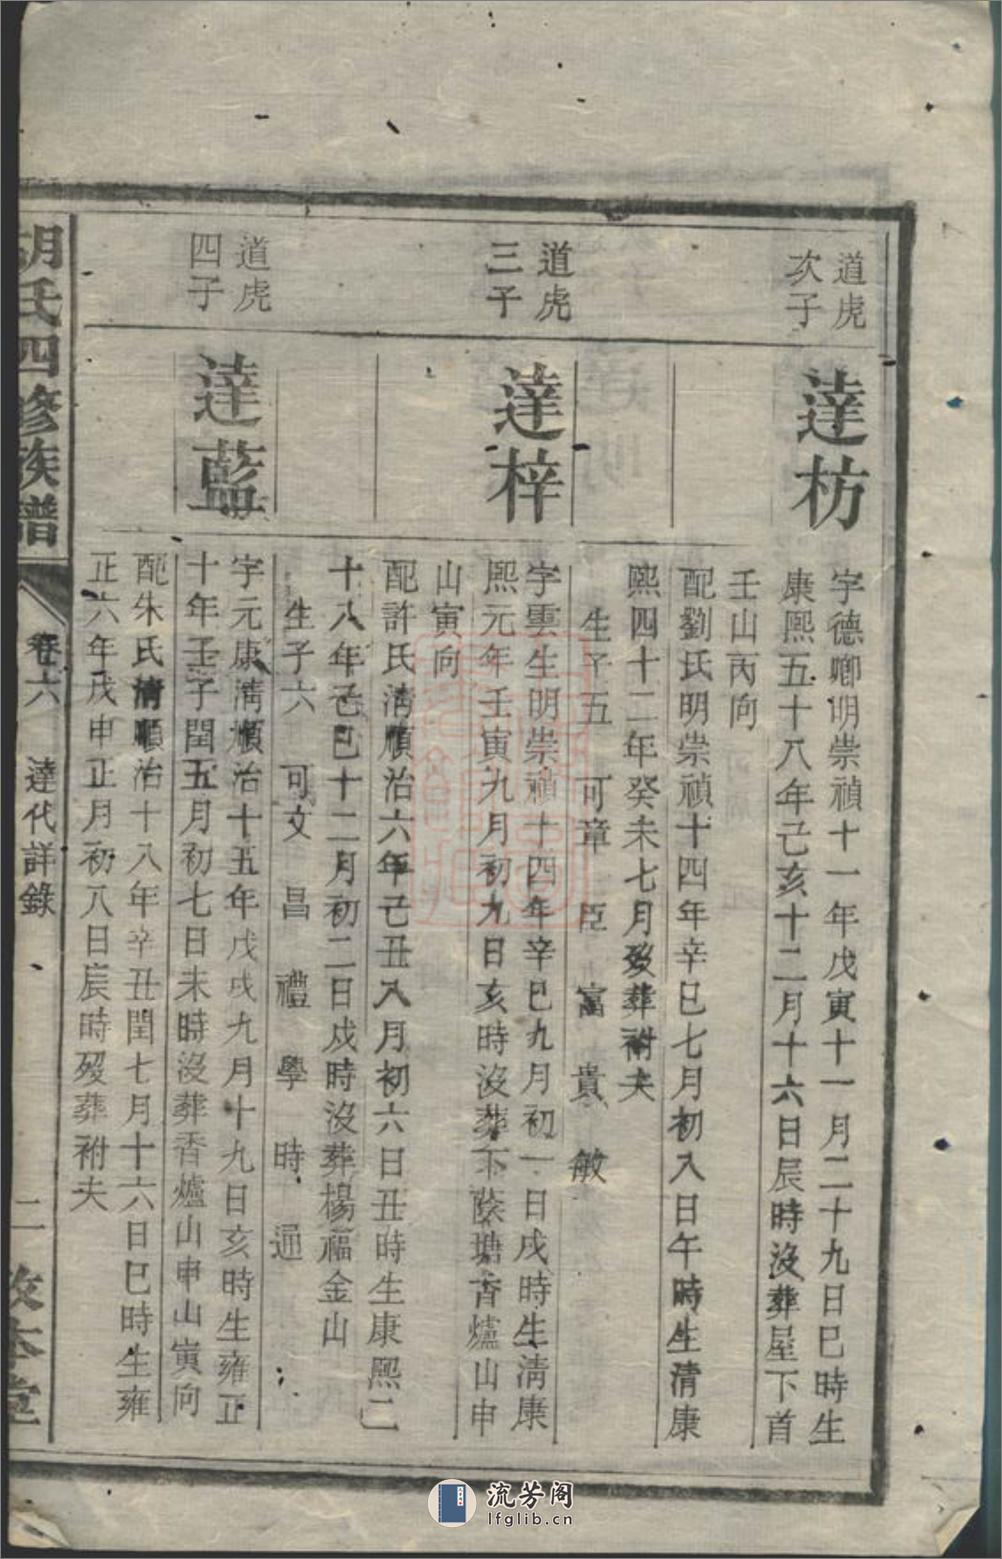 道虎
次子
達枋
字德卿明崇禎十一年戊寅十一月二十九日巳時生
康熙五十八年己亥十二月十六日辰時沒葬屋下首
壬山丙向
配劉氏明崇禎十四年辛巳七月初八日午時生清康
熙四十二年癸未七月歿葬祔夫
生子五 可章 臣 富 貴 敏
道虎
三子
達梓
字雲生明崇禎十四年辛巳九月初一日戌時生清康
熙元年壬寅九月初九日亥時沒葬下蔭塘香爐山申
山寅向
配許氏清順治六年己丑八月初六日丑時生康熙二
十八年己巳十二月初二日戌時沒葬楊福金山
生子六 可文 昌 禮 學 時 通
道虎
四子
達藍
字元康清順治十五年戊戌九月十九日亥時生雍正
十年壬子閏五月初七日未時沒葬香爐山申山寅向
配朱氏清順治十八年辛丑閏七月十六日巳時生雍
正六年戊申正月初八日辰時歿葬祔夫
胡氏四修族譜
卷六
達代詳錄
二
敦本堂
流芳阁
lfglib.cn